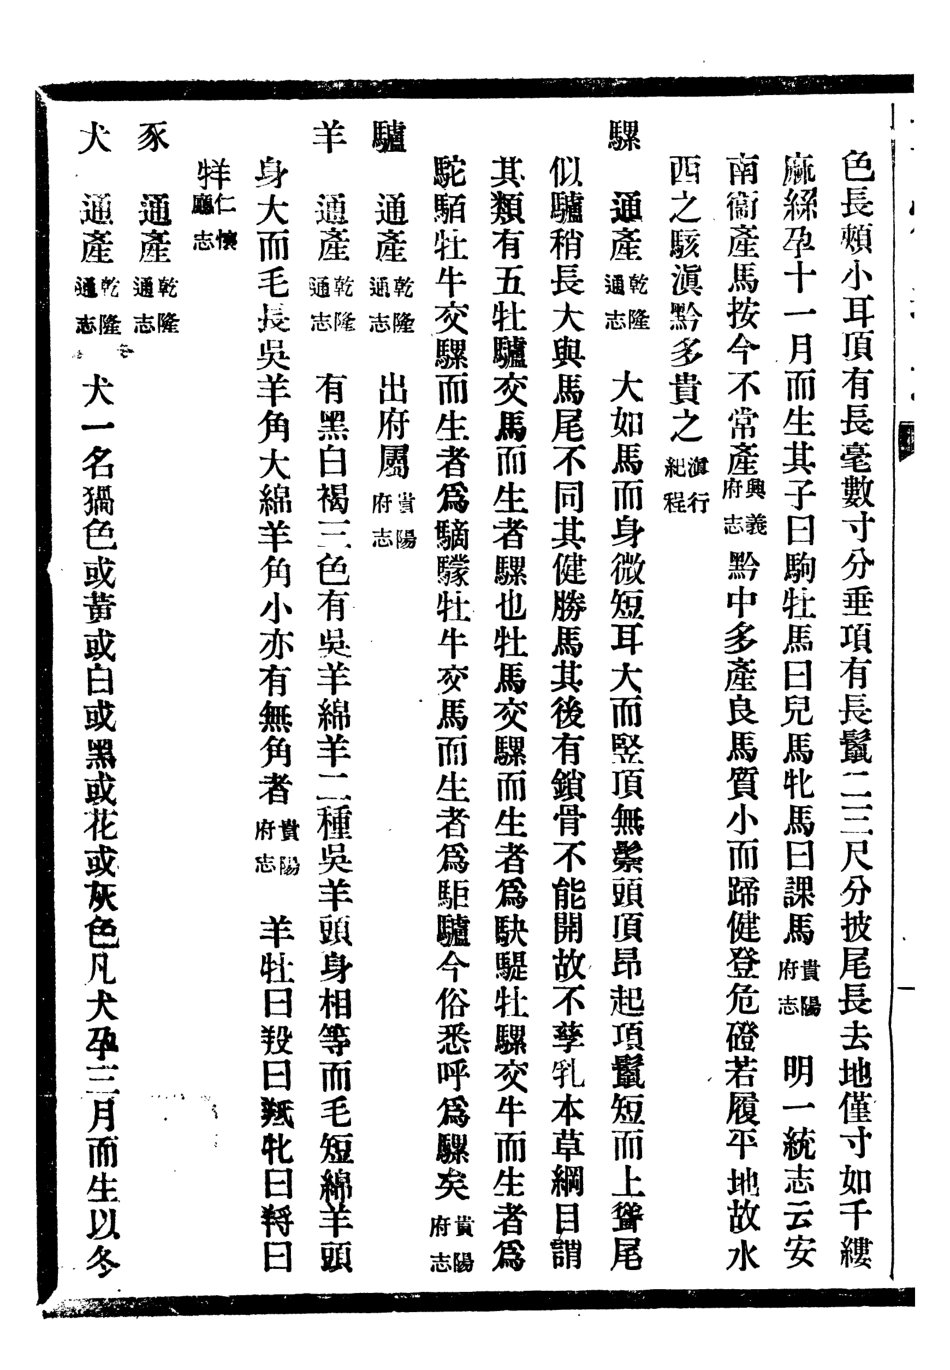 色長頰小耳頂有長毫數寸分垂項有長鬣二三尺分披尾長去地僅寸如千縷
麻絲孕十一月而生其子曰駒牡馬曰兒馬牝馬曰課馬貴陽府志　明一統志云安
南衞產馬按今不常產興義府志　黔中多產良馬質小而蹄健登危磴若履平地故水
西之駭滇黔多貴之滇行紀程
騾　通產乾隆通志　大如馬而身微短耳大而竪頂無鬃頭頂昂起項鬣短而上聳尾
似驢稍長大與馬尾不同其健勝馬其後有鎖骨不能開故不孳乳本草綱目謂
其類有五牡驢交馬而生者騾也牡馬交騾而生者爲駃騠牡騾交牛而生者爲
駝駬牡牛交騾而生者爲驈驡牡牛交馬而生者爲駏驢今俗悉呼爲騾矣貴陽府志
驢　通產乾隆通志　出府屬貴陽府志
羊　通產乾隆通志　有黑白褐三色有吳羊綿羊二種吳羊頭身相等而毛短綿羊頭
身大而毛長吳羊角大綿羊角小亦有無角者貴陽府志　羊牡曰羖曰羝牝曰牸曰
牂仁懷廳志
豕　通產乾隆通志
犬　通產乾隆通志　犬一名猧色或黃或白或黑或花或灰色凡犬孕三月而生以冬